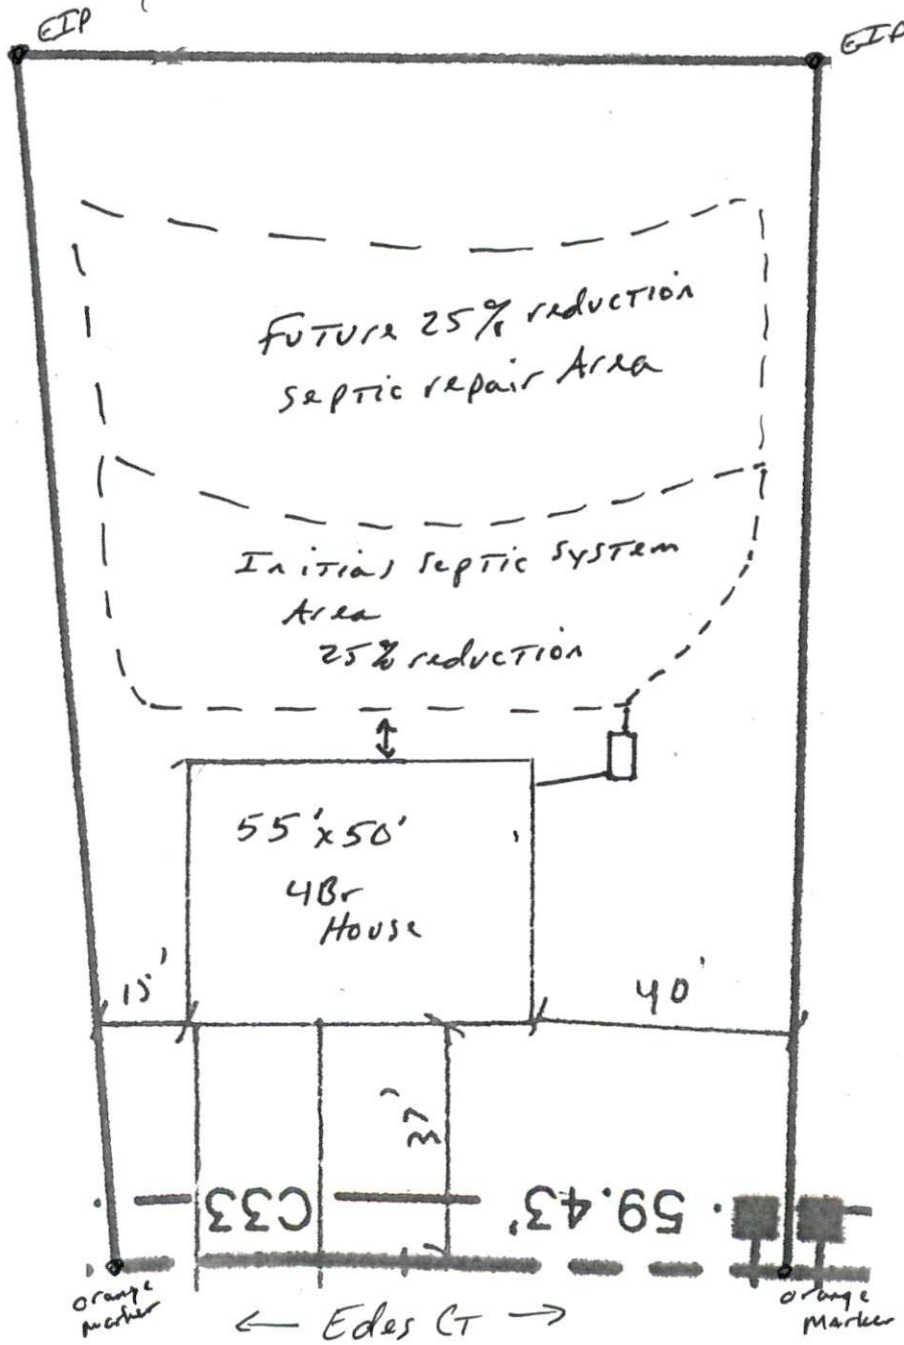 EIP
EIP
Future 25% reduction
septic repair Area
Initial septic system
Area
25% reduction
55'x50'
4Br
House
15'
40'
37'
C33
59.43'
orange
marker
Edes CT
orange
Marker